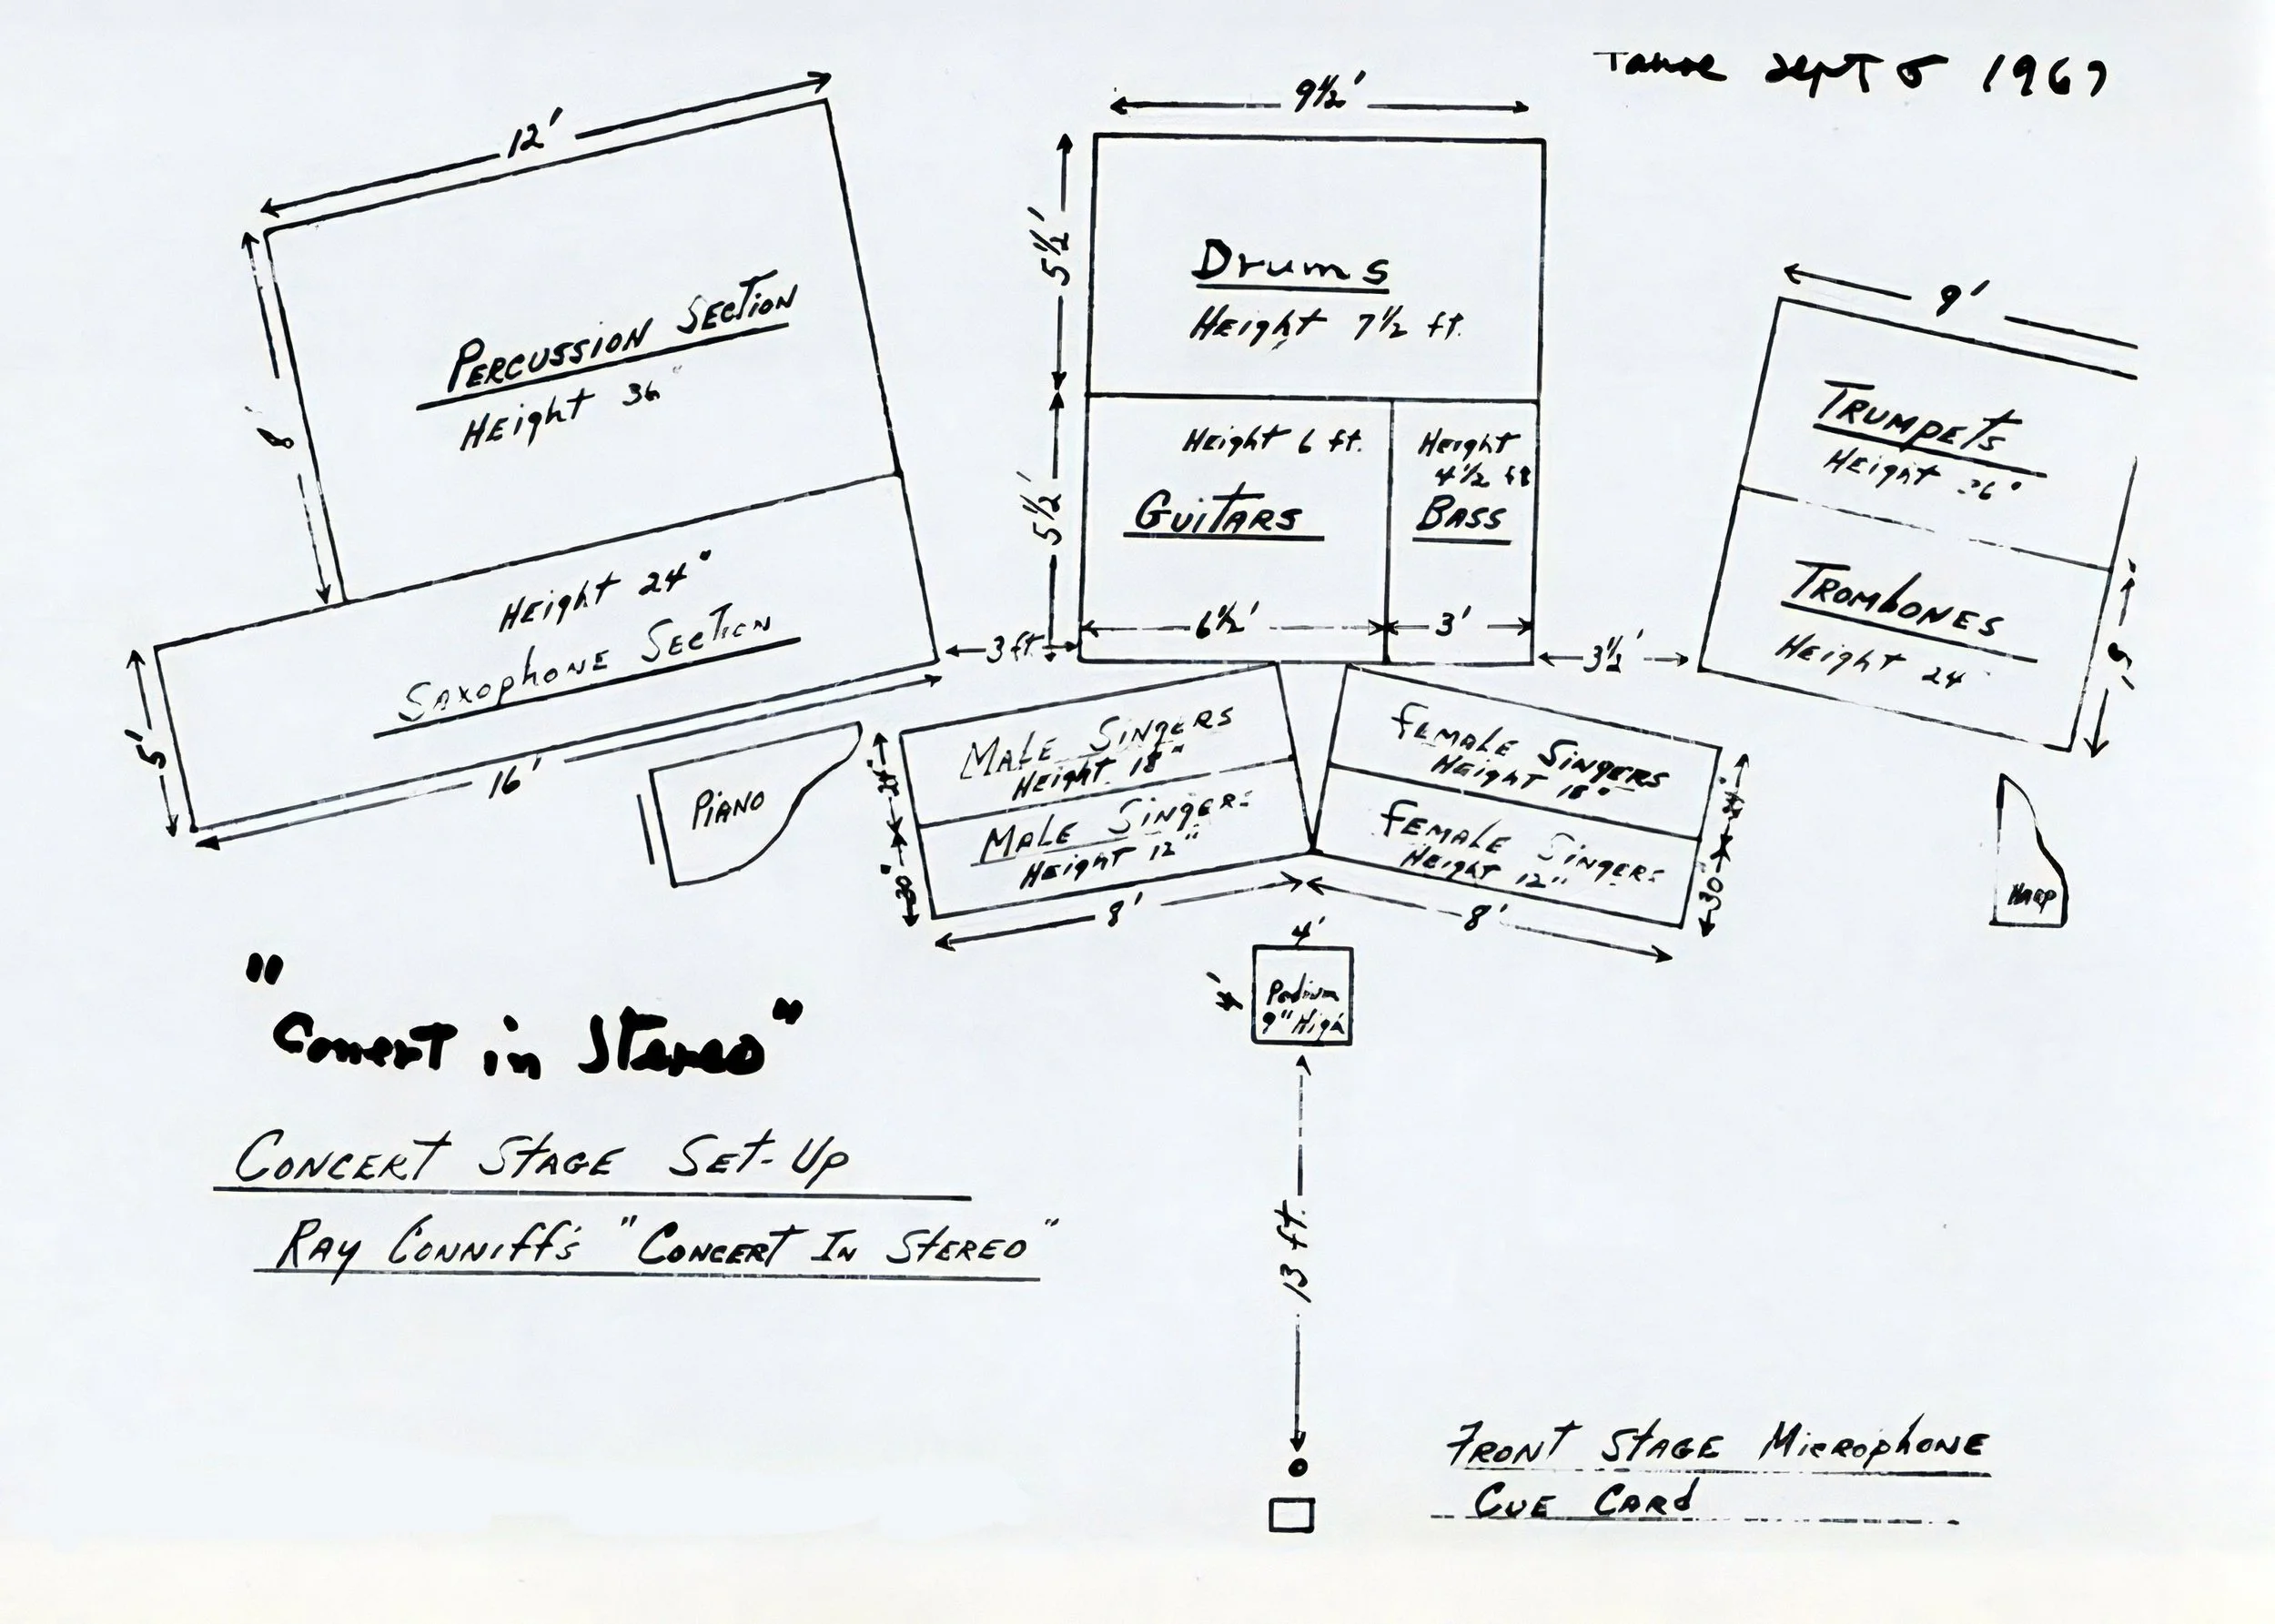 Tahoe Sept 5 1967
12'
9½'
5½'
Drums
Height 7½ ft.
9'
8'
PERCUSSION SECTION
HEIGHT 36"
TRUMPETS
HEIGHT 36"
5½'
Height 6 ft.
GUITARS
6½'
Height
4½ ft
BASS
3'
TROMBONES
HEIGHT 24"
Height 24"
SAXOPHONE SECTION
5'
16'
3 ft.
3½'
PIANO
MALE SINGERS
HEIGHT 18"
MALE SINGERS
HEIGHT 12"
30"
8'
FEMALE SINGERS
HEIGHT 18"
FEMALE SINGERS
HEIGHT 12"
30"
8'
HARP
4'
4'
Podium
9" High
"
Concert in Stereo"
CONCERT STAGE SET-UP
RAY CONNIFF'S "CONCERT IN STEREO"
13 ft.
FRONT STAGE MICROPHONE
CUE CARD